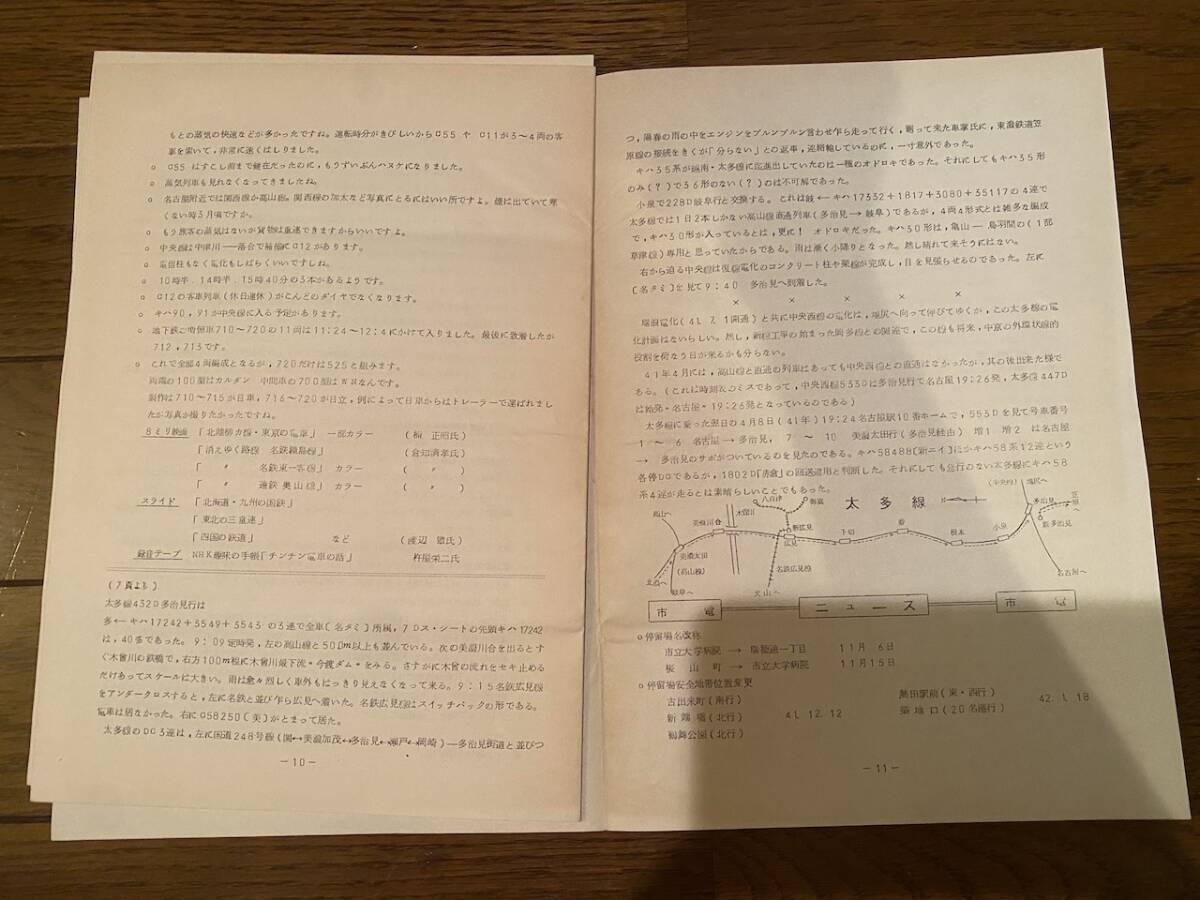 もとの蒸気の快速などが多かったですね。運転時分がきびしいからC55 や C11が3〜4両の客
車を索いて、非常に速くはしりました。
○ C55 はすこし前まで健在だったのに、もうずいぶんハヌケになりました。
○ 蒸気列車も見れなくなってきましたね。
○ 名古屋附近では関西線か高山線。関西線の加太など写真にとるにはいい所ですよ。煙は出ていて寒
くない時3月頃ですか。
○ もう旅客の蒸気はないが貨物は重連できますからいいですよ。
○ 中央西は中津川──落合で補機にC12があります。
○ 電信柱もなく電化もしばらくいいですしね。
○ 10時半、14時半、15時40分の3本があるようです。
○ C12の客車列車(休日運休)がこんどのダイヤでなくなります。
○ キハ90,91が中央線に入る予定があります。
○ 地下鉄ご増備車710〜720の11両は11:24〜12:4にかけて入りました。最後に到着したが
712,713です。
○ これで全部4両編成となるが、720だけは525と組みます。
両端の100型はカルダン 中間車の700型はWNなんです。
製作は710〜715が日車,716〜720が日立,例によって日車からはトレーラーで運ばれまし
たが写真が撮りたかったですね。
8ミリ映画 「北陸柳カ線・東京の電車」 一部カラー (楠 正昭氏)
「消えゆく路線 名鉄鏡島線」 (倉知満孝氏)
「 〃 名鉄東一客線」 カラー ( 〃 )
「 〃 遠鉄奥山線」 カラー ( 〃 )
スライド 「北海道・九州の国鉄」
「東北の三重連」
「四国の鉄道」 など (渡辺 徹氏)
録音テープ NHK趣味の手帳「チンチン電車の話」 杵屋栄二氏
(7頁より)
太多線432D多治見行は
多←キハ17242+5549+5543 の3連で全車〔名タミ〕所属,7Dス・シートの先頭キハ17242
は,40番であった。9:09定時発,左の高山線と500m以上も並んでいる。次の美濃川合を出るとす
ぐ木曽川の鉄橋で,右方100m程に木曽川最下流“今渡ダム”をみる。さすがに木曽の流れをセキ止める
だけあってスケールは大きい。雨は愈々烈しく車外もはっきり見えなくなって来る。9:15名鉄広見線
をアンダークロスすると,左に名鉄と並び乍ら広見へ着いた。名鉄広見線はスイッチバックの形である。
電車は居なかった。右にC58250(美)がとまって居た。
太多線のDC3連は,左に国道248号線(関↔美濃加茂↔多治見↔瀬戸↔岡崎)─多治見街道と並びつ
−10−
つ,陽春の雨の中をエンジンをブルンブルン言わせ乍ら走って行く,廻って来た車掌氏に,東濃鉄道笠
原線の接続をきくが「分らない」との返事,連絡駅しているのに,一寸意外であった。
キハ35系が越南・太多線に迄進出していたのは一種のオドロキであった。それにしてもキハ35形
のみ(?)で36形のない(?)のは不可解であった。
小泉で228D岐阜行と交換する。これは岐←キハ17332+1817+3080+35117の4連で
太多線では1日2本しかない高山線直通列車(多治見→岐阜)であるが,4両4形式とは雑多な編成
で,キハ30形が入っているとは,更に! オドロキだった。キハ30形は,亀山─鳥羽間の(1部
草津線)専用と思っていたからである。雨は漸く小降りとなった。然し晴れて来そうにはない。
右から迫る中央線は複線電化のコンクリート柱や架線が完成し,目を見張らせるのであった。左に
〔名タミ〕を見て9:40 多治見へ到着した。
× × × × ×
瑞浪電化(41.7.1開通)と共に中央西線の電化は,塩尻へ向って伸びてゆくが,この太多線の電
化計画はないらしい。然し,新線工事の始まった岡多線との関連で,この線も将来,中京の外環状線的
役割を荷なう日が来るかも分らない。
41年4月には,高山線と直通の列車はあっても中央西線との直通はなかったが,其の後出来た様で
ある。(これは時刻表のミスであって,中央西線533Dは多治見行で名古屋19:26発,太多線447D
は始発・名古屋・19:26発となっているのである)
太多線に乗った翌日の4月8日(41年)19:24名古屋駅10番ホームで,553Dを見て号車番号
1 〜 6 名古屋→多治見, 7 〜 10 美濃太田行(多治見経由) 増1 増2 は名古屋
→ 多治見のサボがついているのを見たのである。キハ58488〔新ニイ〕ほかキハ58系12連という
各停DCであるが,1802D「赤倉」の回送運用と判断した。それにしても急行のない太多線にキハ58
系4連が走るとは素晴らしいことでもあった。
太多線
(中央西) 塩尻へ
高山へ
美濃川合
木曽川
八百津
御嵩
新広見
広見
下切
姫
根本
小泉
多治見
笠原へ
新多治見
美濃太田
(高山線)
北濃へ
岐阜へ
犬山へ
名鉄広見線
名古屋へ
市電 ニュース 市電
○ 停留場名改称
市立大学病院 → 瑞穂通一丁目 11月 6日
桜山町 → 市立大学病院 11月15日
○ 停留場安全地帯位置変更
古出来町(南行)
新端橋(北行) 41.12.12
鶴舞公園(北行)
熱田駅前(東・西行)
築地口(20名港行) 42.1.18
−11−